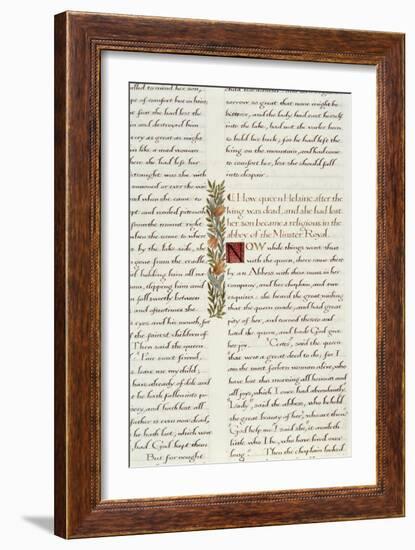 alled to mind her son,
pe of comfort but in him;
t four she had lost the
in and destroyed them
cry as great as might
in like a mad woman
here she had left her
straught was she with
ammoned or ever she was
nd when she came to
ept and rended patiently
from the mount right
the lake side, she
gone from the cradle
d holding him all na-
ms, clipping him and
full sweetly between
and ofttimes she
eyes and his mouth, for
f the fairest children of
Then said the queen
"Fair sweet friend,
leave me my child;
have already of dole and
to he hath fallen into po-
very, and hath lost all
father is even now dead,
he hath lost, which were
had God kept them
But for nought
sorrow so great that none might be
bitterer, and the lady had cast herself
into the lake, had not the varlet been
to hold her back; for he had left the
king on the mountain, and had come
to comfort her, lest she should fall
into despair.
How queen Helaine after the
king was dead, and she had lost
her son became a religious in the
abbey of the Minster Royal.
NOW while things went thus
with the queen, there came there
by an Abbess with three nuns in her
company, and her chaplain, and two
esquires: she heard the great wailing
that the queen made, and had great
pity of her, and turned thereto and
hailed the queen, and bade God give
her joy. "Certes, said the queen
that were a great deed to do; for I
am the most forlorn woman alive, who
have lost this morning all honours and
all joys, which I once had abundantly."
"Lady", said the abbess, who beheld
the great beauty of her, "who art thou?"
"God help me!" said she, "it recketh
little who I be, who have lived over
long." Then the chaplain looked